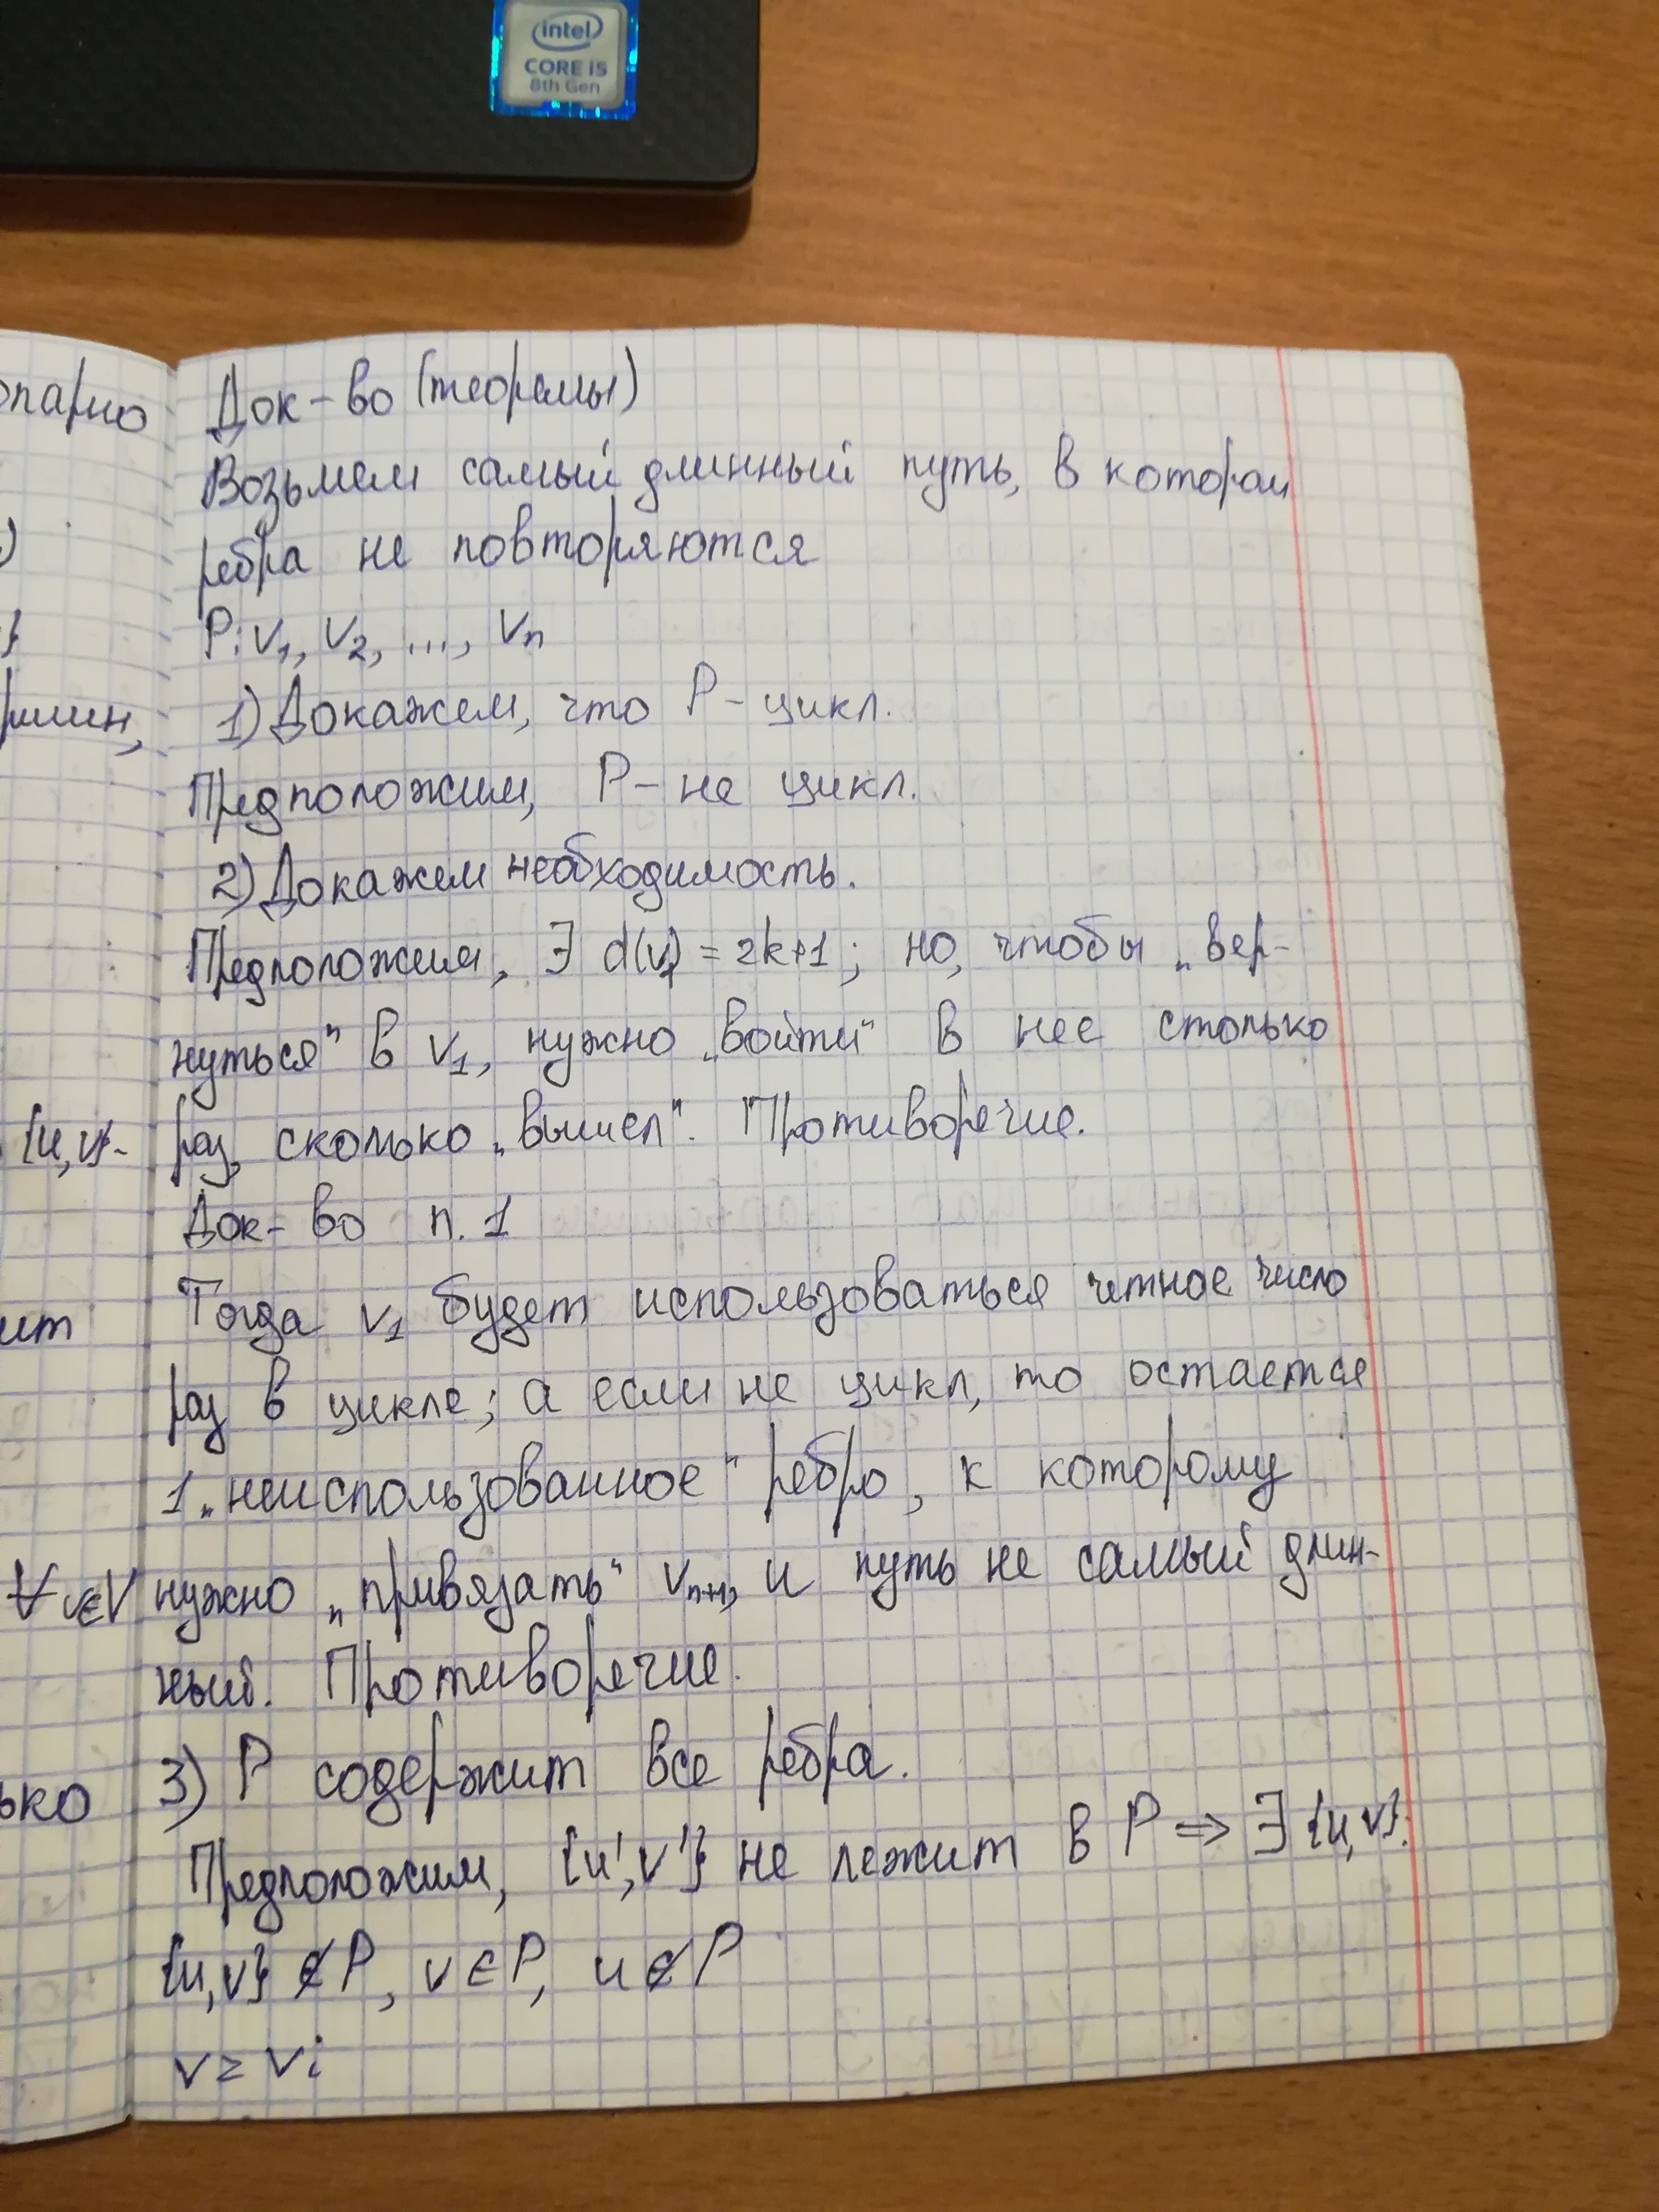 intel
CORE i5
8th Gen
Док-во (теоремы)
Возьмем самый длинный путь, в котором
ребра не повторяются
P: v₁, v₂, ..., vₙ
1) Докажем, что P - цикл.
Предположим, P - не цикл.
2) Докажем необходимость.
Предположим, ∃ d(v₁) = 2k+1; но, чтобы „вер-
нуться" в v₁, нужно „войти" в нее столько
раз, сколько „вышел". Противоречие.
Док-во п. 1
Тогда v₁ будет использоваться четное число
раз в цикле; а если не цикл, то остается
1 „неиспользованное" ребро, к которому
нужно „привязать" vₙ₊₁, и путь не самый длин-
ный. Противоречие.
3) P содержит все ребра.
Предположим, {u',v'} не лежит в P ⇒ ∃ {u,v}:
{u,v} ∉ P, v ∈ P, u ∉ P
v = vᵢ
опарно
)
}
ршин,
{u,v}-
ит
∀ v∈V
ько